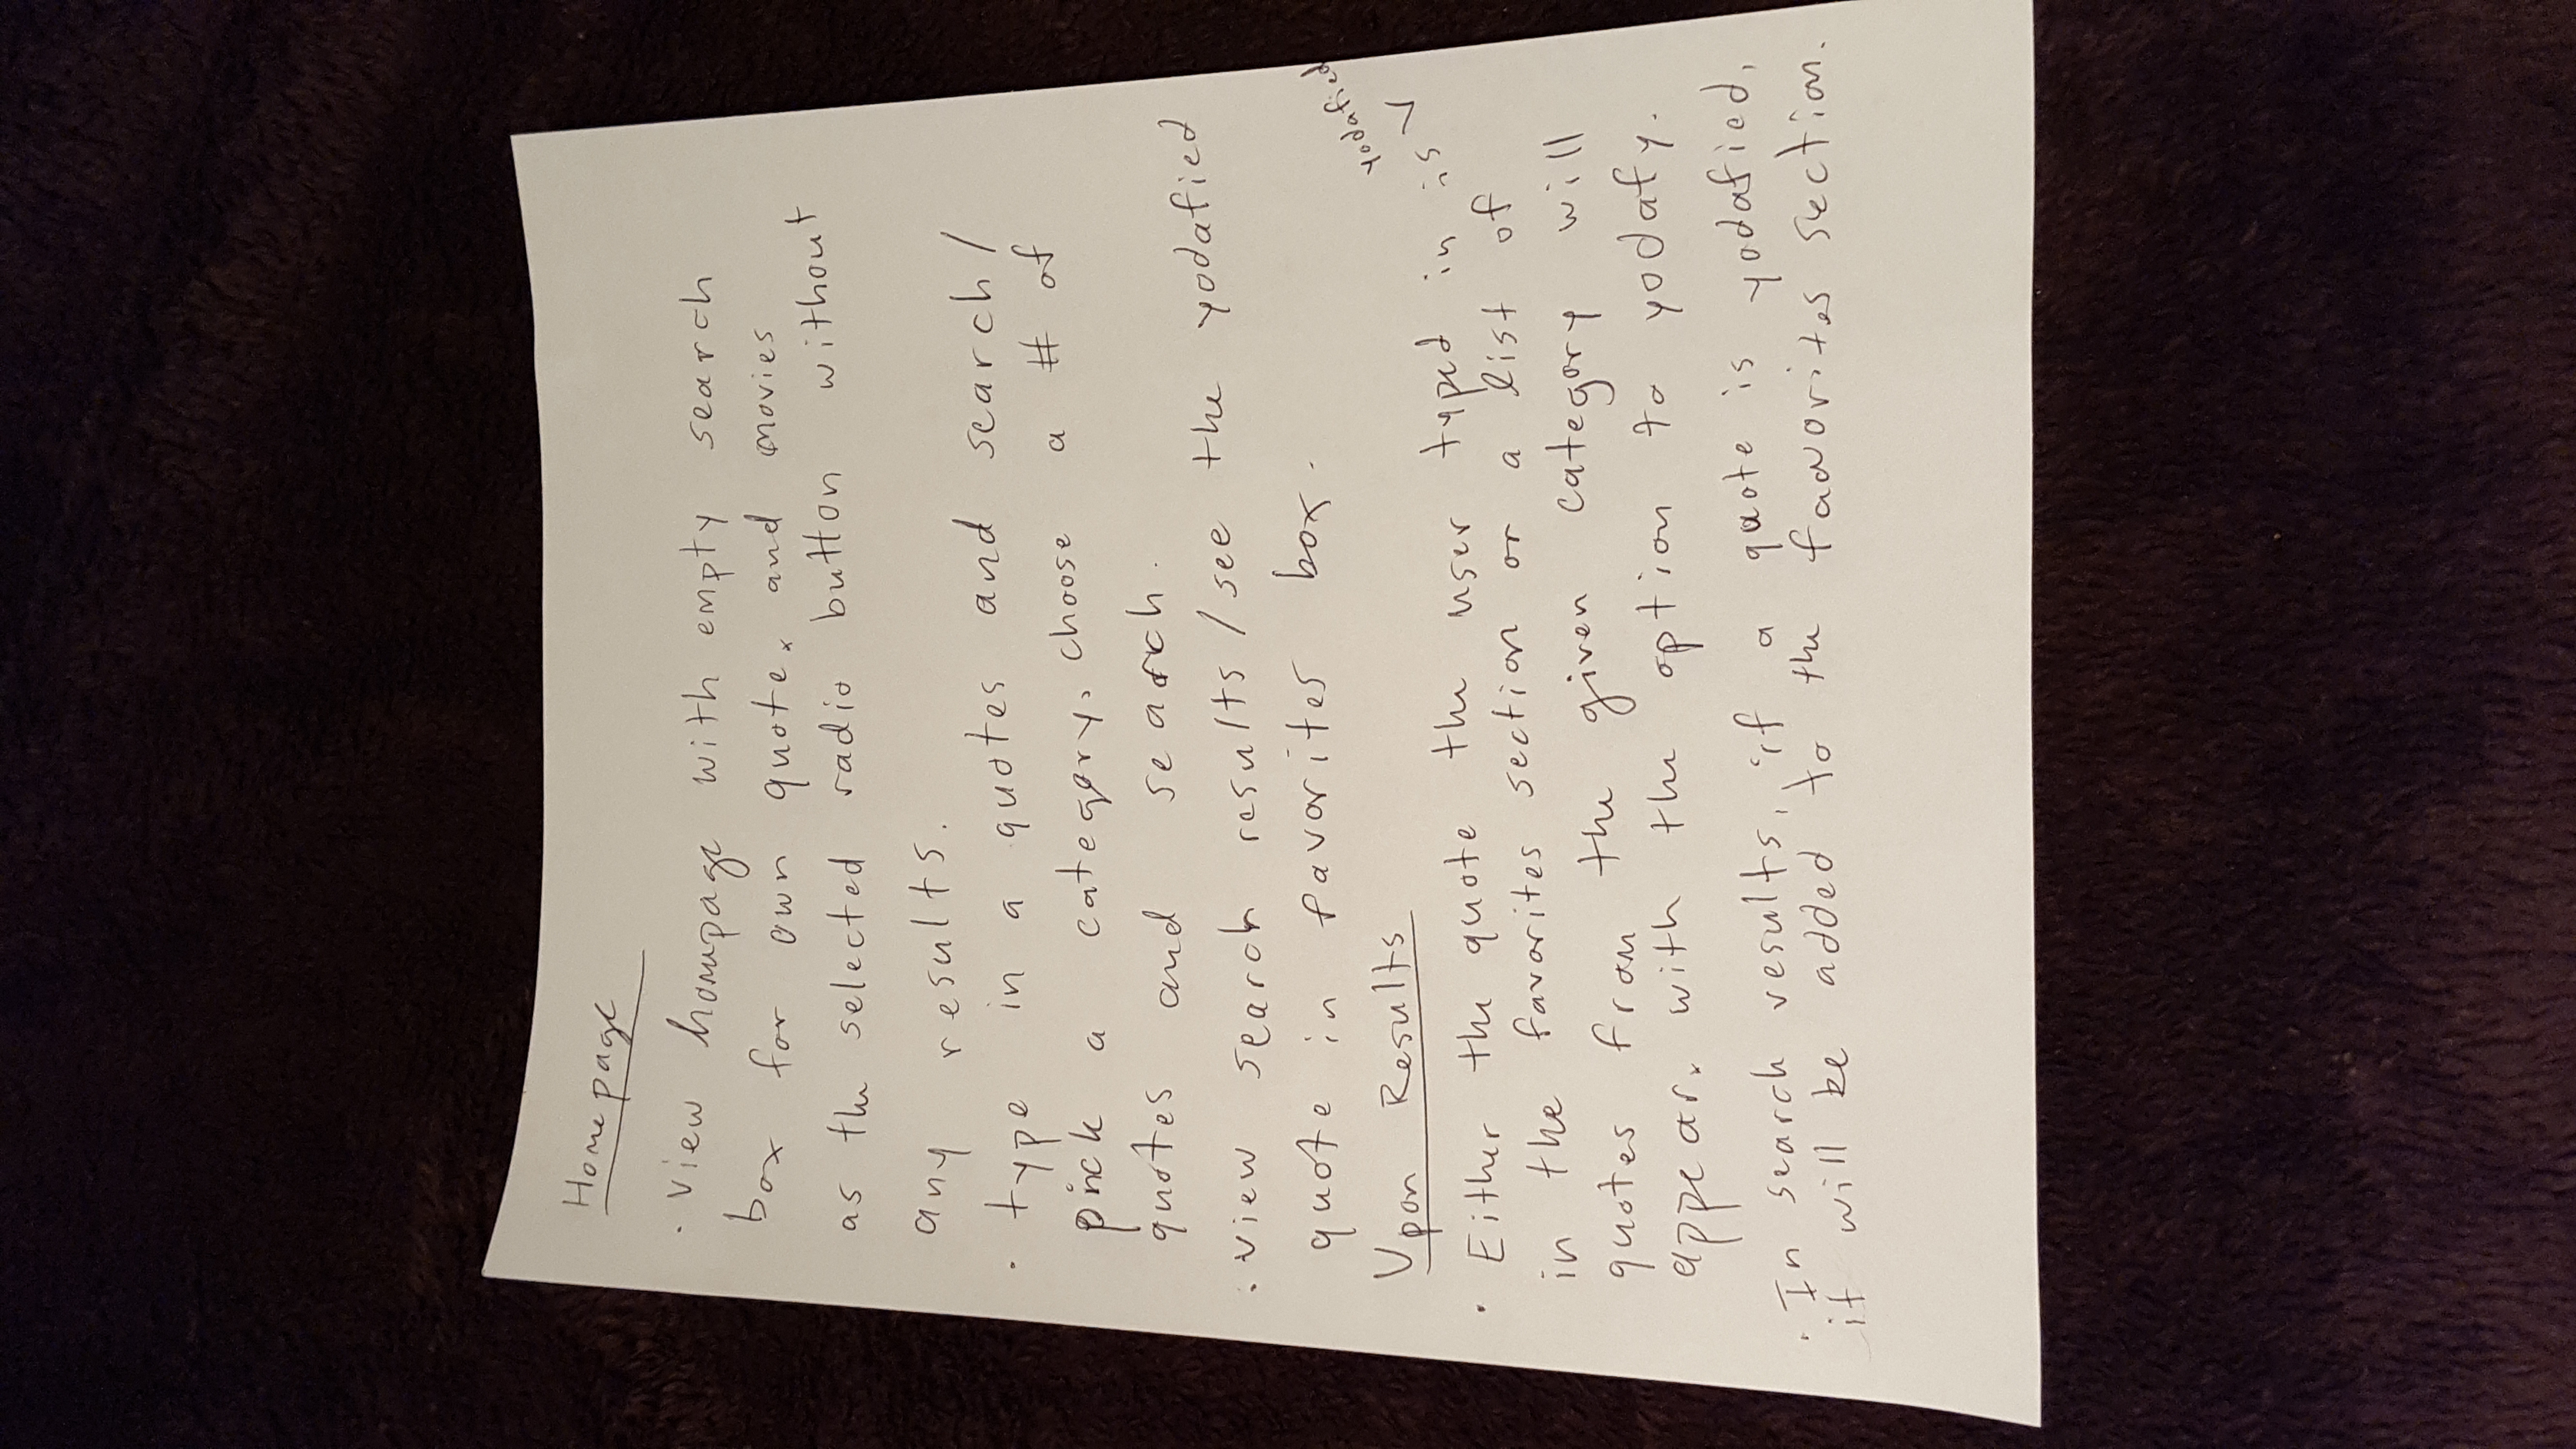 Homepage
· view homepage with empty search
box for own quote. and movies
as the selected radio button without
any results.
· type in a quotes and search/
pick a category, choose a # of
quotes and search.
· view search results / see the yodafied
quote in favorites box.
Upon Results
yodafied
· Either the quote the user typed in is
in the favorites section or a list of
quotes from the given category will
appear. with the option to yodafy.
· In search results, if a quote is yodafied,
it will be added to the favorites section.